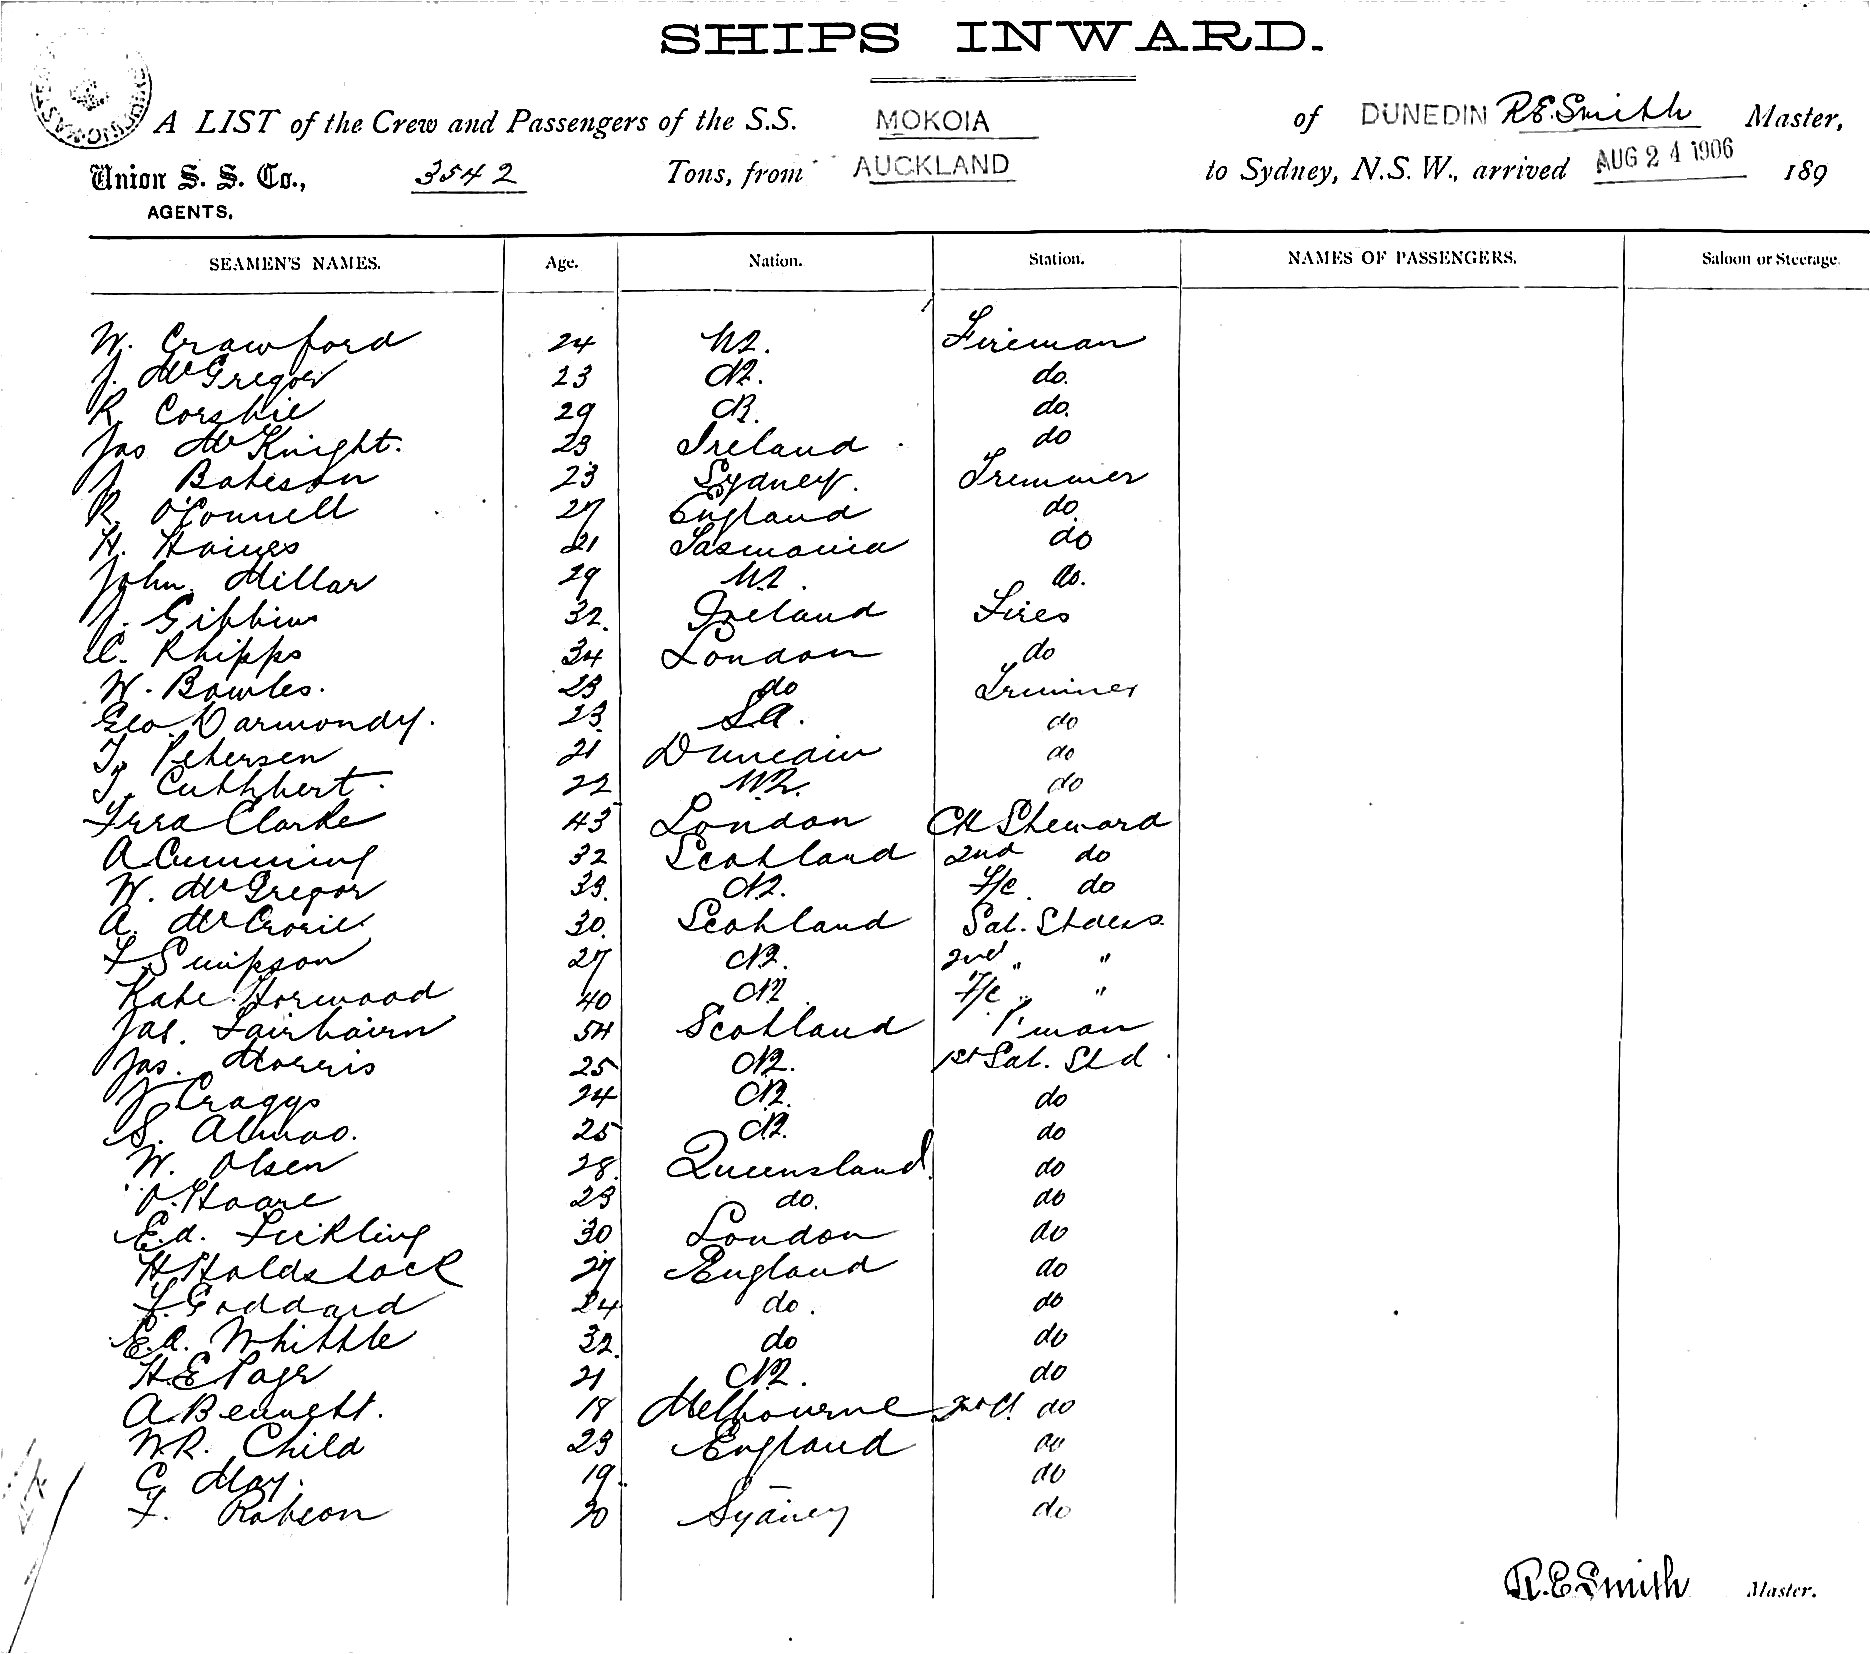 SHIPS INWARD.
A LIST of the Crew and Passengers of the S.S. MOKOIA of DUNEDIN R.E. Smith Master,
Union S. S. Co., 3542 Tons, from AUCKLAND to Sydney, N.S.W., arrived AUG 24 1906 189
AGENTS.
SEAMEN'S NAMES. Age. Nation. Station. NAMES OF PASSENGERS. Saloon or Steerage.
W. Crawford 24 NZ. Fireman
J. McGregor 23 NZ. do.
R. Corshie 29 NZ. do.
Jas McKnight. 23 Ireland do
J Bateson 23 Sydney. Tremmer
R. O'Connell 27 England do
H. Haines 21 Tasmania do
John Millar 29 NZ. do.
J. Gibbins 32. Ireland Fires
C. Phipps 34 London do
W. Bowles. 23 do Trimmer
Geo. Darmondy. 23. S.A. do
T. Petersen 21 Dunedin do
T. Cuthbert. 22 NZ. do
Fred Clarke 43 London Ch Steward
A Cumming 32 Scotland 2nd do
W. McGregor 33. NZ. F/c do
A. McCrorie 30. Scotland Sal. Stdess.
F Simpson 27 NZ. 2nd " "
Kate Horwood 40 NZ F/c " "
Jas. Fairbairn 54 Scotland P'man
Jas. Morris 25 NZ. 1st Sal. Std.
J Craggs 24 NZ. do
S. Almao. 25 NZ. do
W. Olsen 28. Queensland. do
O. Hoare 23 do. do
Ed. Fickling 30 London do
H Holdstock 27 England do
F. Goddard 24 do. do
E.A. Whittle 32. do do
H.E Page 21 NZ. do
A Bennett. 18 Melbourne 2nd do
W.R. Child 23 England do
C. May. 19. do
F. Robson 20 Sydney do
R.E Smith Master.